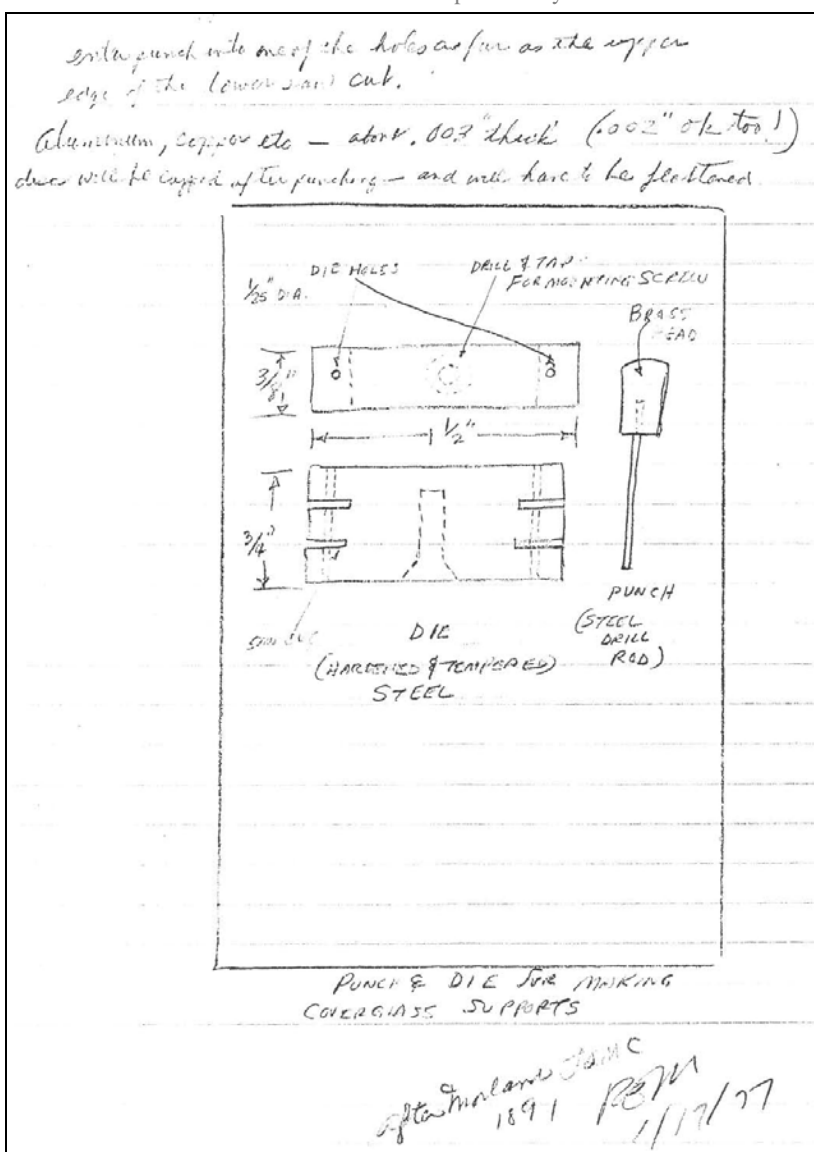 enter punch into one of the holes as far as the upper
edge of the lower saw cut.
Aluminum, copper etc — about .003" thick (.002" ok too!)
discs will be cupped after punching — and will have to be flattened.
DIE HOLES
DRILL & TAP
FOR MOUNTING SCREW
1/25" DIA.
BRASS
HEAD
3/8"
1/2"
3/4"
PUNCH
(STEEL
DRILL
ROD)
SAW CUT
DIE
(HARDENED & TEMPERED)
STEEL
PUNCH & DIE FOR MAKING
COVERGLASS SUPPORTS
after Morland
1891
1/17/77